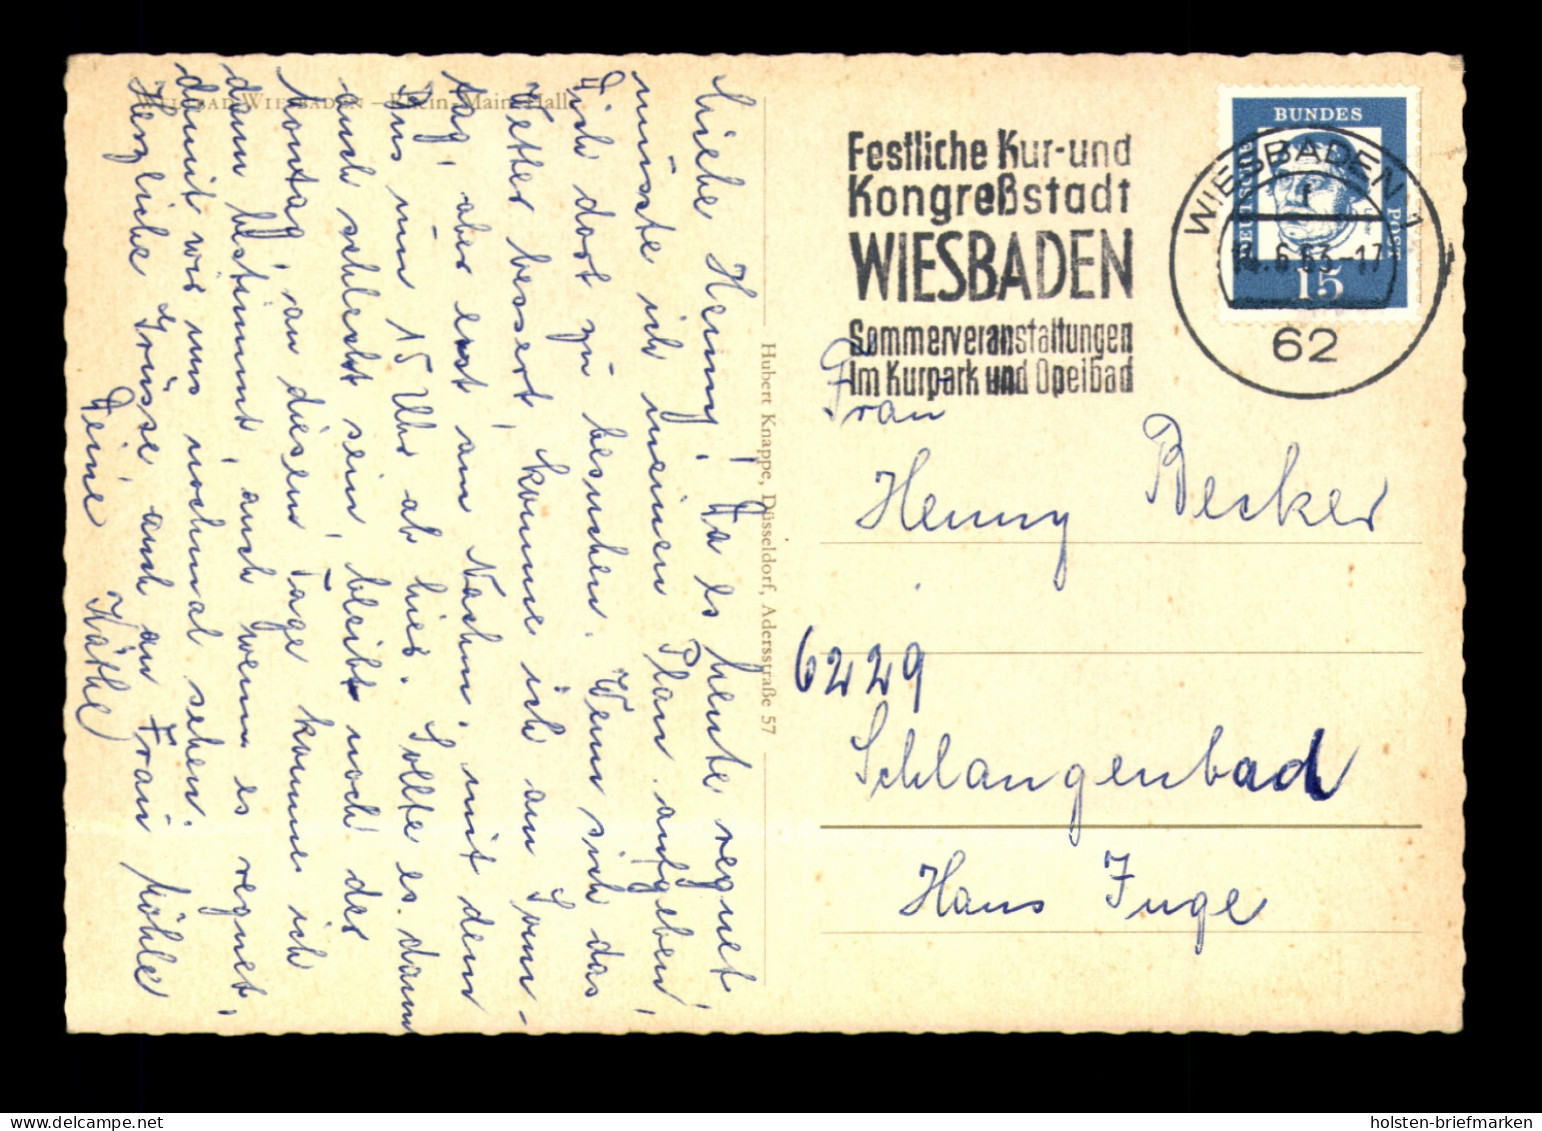 WELTBAD WIESBADEN – Rhein-Main-Halle
Liebe Henny! Da es heute regnet,
müsste ich meinen Plan aufgeben,
Dich dort zu besuchen. Wenn sich das
Wetter bessert, komme ich am Sonn-
tag, aber erst am Nachm. mit dem
Bus um 15 Uhr ab hier. Sollte es dann
auch schlecht sein, bleibt noch der
Montag, an diesem Tage komme ich
dann bestimmt, auch wenn es regnet,
damit wir uns nochmal sehen.
Herzliche Grüsse auch an Frau Möhle
Deine Käthe
Hubert Knappe, Düsseldorf, Adersstraße 57
Festliche Kur- und
Kongreßstadt
WIESBADEN
Sommerveranstaltungen
Im Kurpark und Opelbad
WIESBADEN 1
f
14.6.63-17
62
DEUTSCHE
BUNDES
POST
15
Frau
Henny Becker
6229
Schlangenbad
Hans Inge
holsten-briefmarken